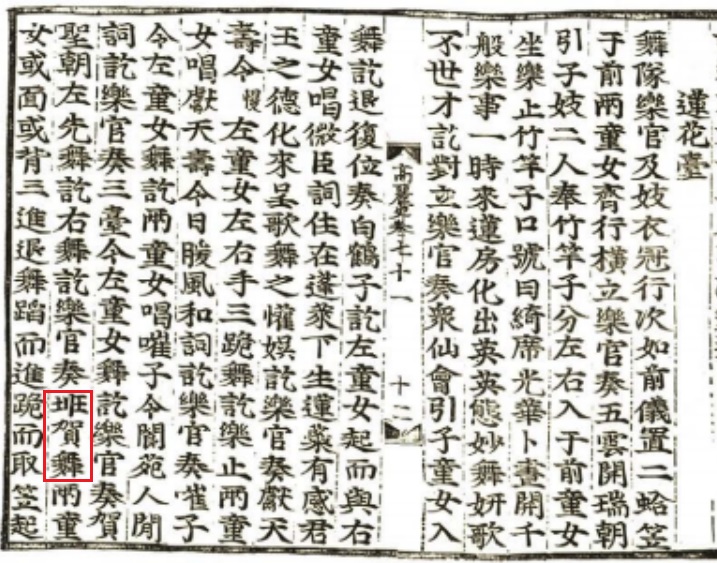 蓮花臺
舞隊樂官及妓衣冠行次如前儀置二蛤笠
于前兩童女齊行橫立樂官奏五雲開瑞朝
引子妓二人奉竹竿子分左右入于前童女
坐樂止竹竿子口號曰綺席光華卜晝開千
般樂事一時來蓮房化出英英態妙舞妍歌
不世才訖對立樂官奏衆仙會引子童女入
高麗史卷七十一 十二
舞訖退復位奏白鶴子訖左童女起而與右
童女唱微臣詞住在蓬萊下生蓮蘂有感君
王之德化來呈歌舞之懽娛訖樂官奏獻天
壽令慢 左童女左右手三跪舞訖樂止兩童
女唱獻天壽令日暖風和詞訖樂官奏嗺子
令左童女舞訖兩童女唱嗺子令閬苑人閒
詞訖樂官奏三臺令左童女舞訖樂官奏賀
聖朝左先舞訖右舞訖樂官奏班賀舞兩童
女或面或背三進退舞蹈而進跪而取笠起